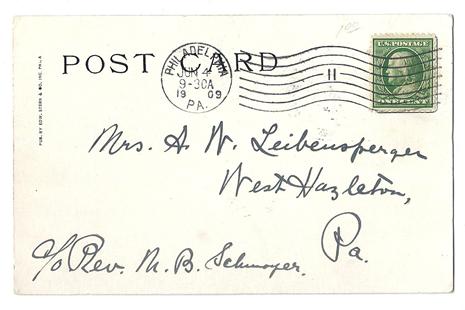 1.00
POST CARD
PUB. BY EDW. STERN & CO. INC. PHILA.
PHILADELPHIA
JUN 4
9-30A
1909
PA.
11
U.S. POSTAGE
ONE CENT
Mrs. A. W. Leibensperger
West Hazleton,
Pa.
c/o Rev. M. B. Schmoyer.